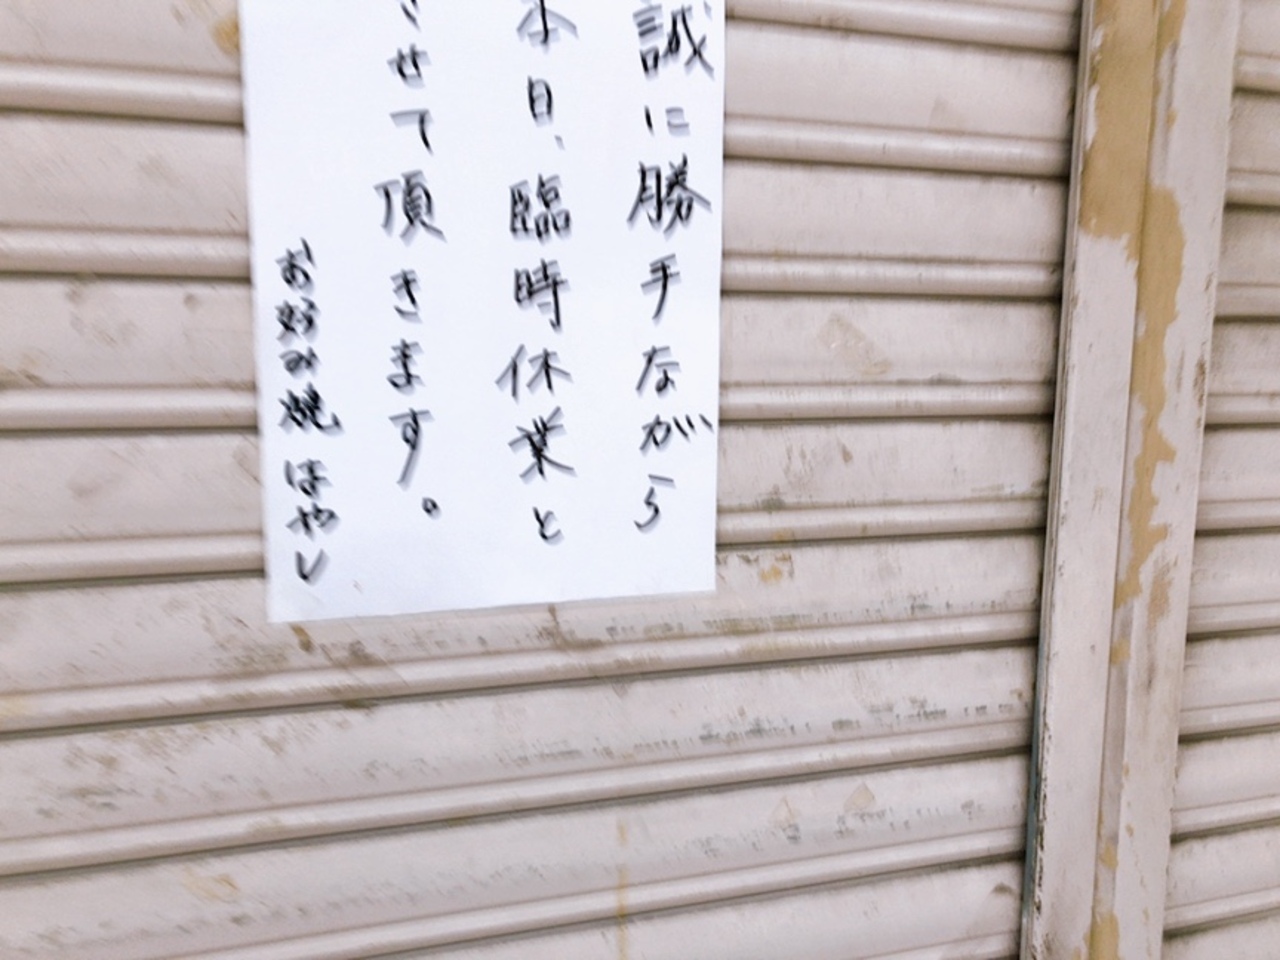 誠に勝手ながら
本日、臨時休業と
させて頂きます。
お好み焼 はやし